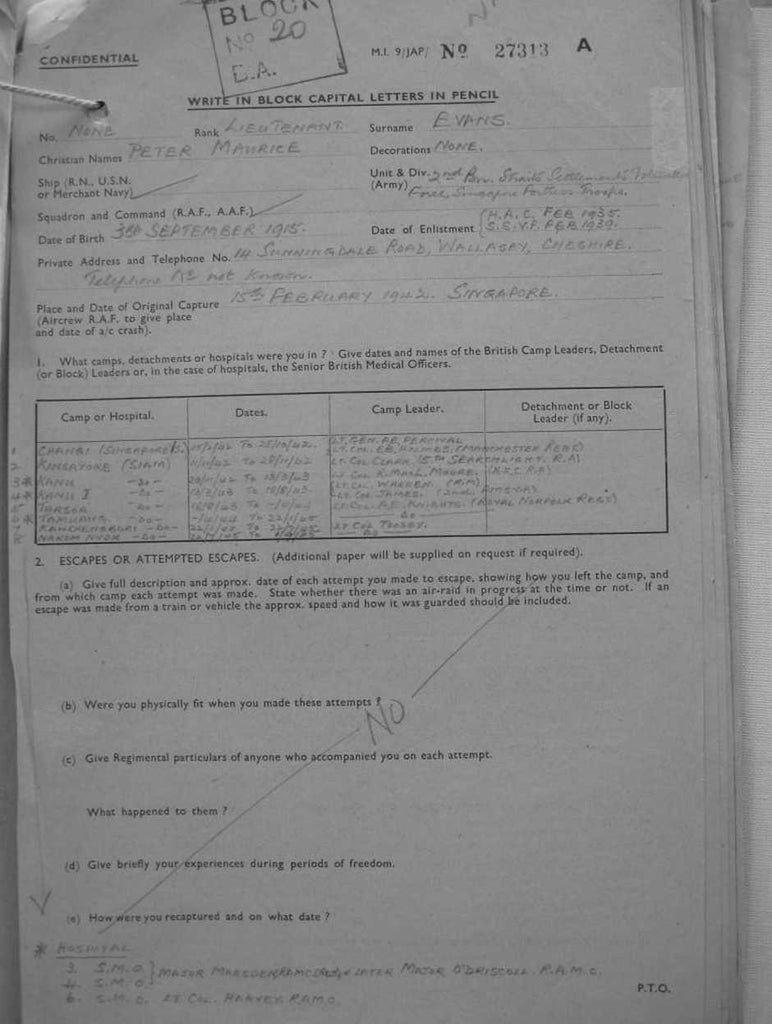 BLOCK
No 20
B.A.
CONFIDENTIAL
M.I. 9/JAP/ No 27313 A
WRITE IN BLOCK CAPITAL LETTERS IN PENCIL
No. NONE Rank LIEUTENANT. Surname EVANS.
Christian Names PETER MAURICE Decorations NONE.
Ship (R.N., U.S.N. or Merchant Navy)
Unit & Div. (Army) 2nd Bn. Straits Settlements Volunteer
Force, Singapore Fortress Troops.
Squadron and Command (R.A.F., A.A.F.)
Date of Birth 3RD SEPTEMBER 1915. Date of Enlistment H.A.C. FEB 1935.
S.S.V.F. FEB 1939.
Private Address and Telephone No. 14 SUNNINGDALE ROAD, WALLASEY, CHESHIRE.
Telephone No not known.
Place and Date of Original Capture 15TH FEBRUARY 1942. SINGAPORE.
(Aircrew R.A.F. to give place
and date of a/c crash).
1. What camps, detachments or hospitals were you in ? Give dates and names of the British Camp Leaders, Detachment
(or Block) Leaders or, in the case of hospitals, the Senior British Medical Officers.
Camp or Hospital. Dates. Camp Leader. Detachment or Block Leader (if any).
1 CHANGI (SINGAPORE) 15/2/42 TO 25/10/42. LT. GEN. A.E. PERCIVAL
LT. COL. E.B. HOLMES (MANCHESTER REGT)
2 (SIAM) LT. COL CLARK (5TH SEARCHLIGHT. R.A)
3* KANU -DO- TO 18/3/43 LT. COL MOORE
4* KANU I -DO- 18/3/43 TO LT. COL. WARREN (R.M)
LT. COL. JAMES
5 TARSOA -DO- LT. COL. A.E. KNIGHTS. (ROYAL NORFOLK REGT)
6* -DO- TO 22/1/45 -DO-
-DO- 22/1/45 TO LT COL TOOSEY.
8 NAKOM NYOK -DO-
2. ESCAPES OR ATTEMPTED ESCAPES. (Additional paper will be supplied on request if required).
(a) Give full description and approx. date of each attempt you made to escape, showing how you left the camp, and
from which camp each attempt was made. State whether there was an air-raid in progress at the time or not. If an
escape was made from a train or vehicle the approx. speed and how it was guarded should be included.
(b) Were you physically fit when you made these attempts ?
NO
(c) Give Regimental particulars of anyone who accompanied you on each attempt.
What happened to them ?
(d) Give briefly your experiences during periods of freedom.
(e) How were you recaptured and on what date ?
* HOSPITAL
3. S.M.O. } MAJOR MARSDEN LATER MAJOR O'DRISCOLL R.A.M.C.
4. S.M.O.
6. S.M.O. LT COL. HARVEY R.A.M.C.
P.T.O.